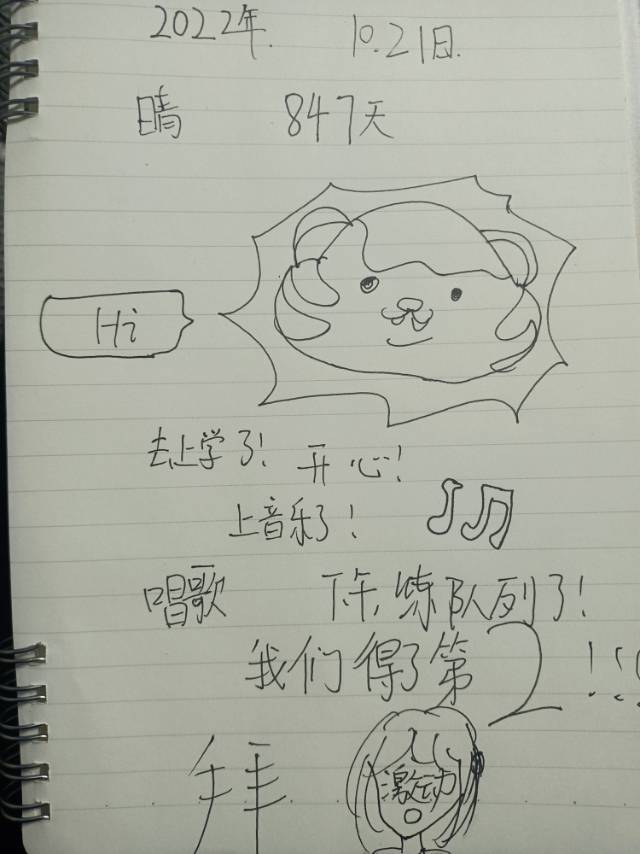 2022年. 10.21日.
晴 847天
Hi
去上学了! 开心!
上音乐了!
唱歌 下午,练队列了!
我们得了第2!!!
激动
拜